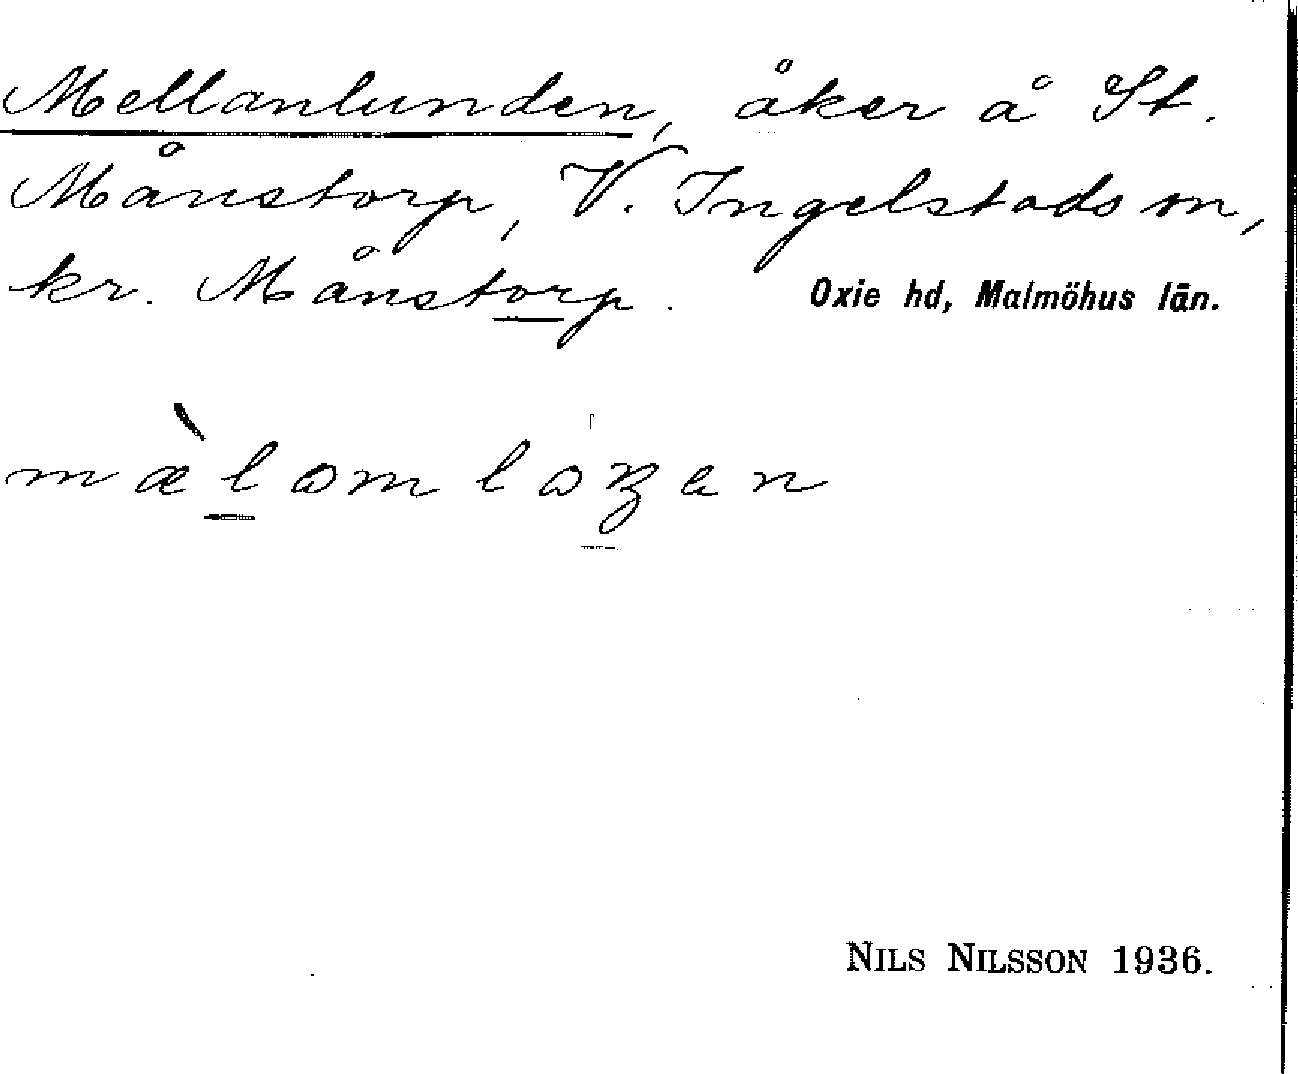 Mellanlunden, åker å St.
Månstorp, V. Ingelstads sn,
kr. Månstorp. Oxie hd, Malmöhus län.
NILS NILSSON 1936.